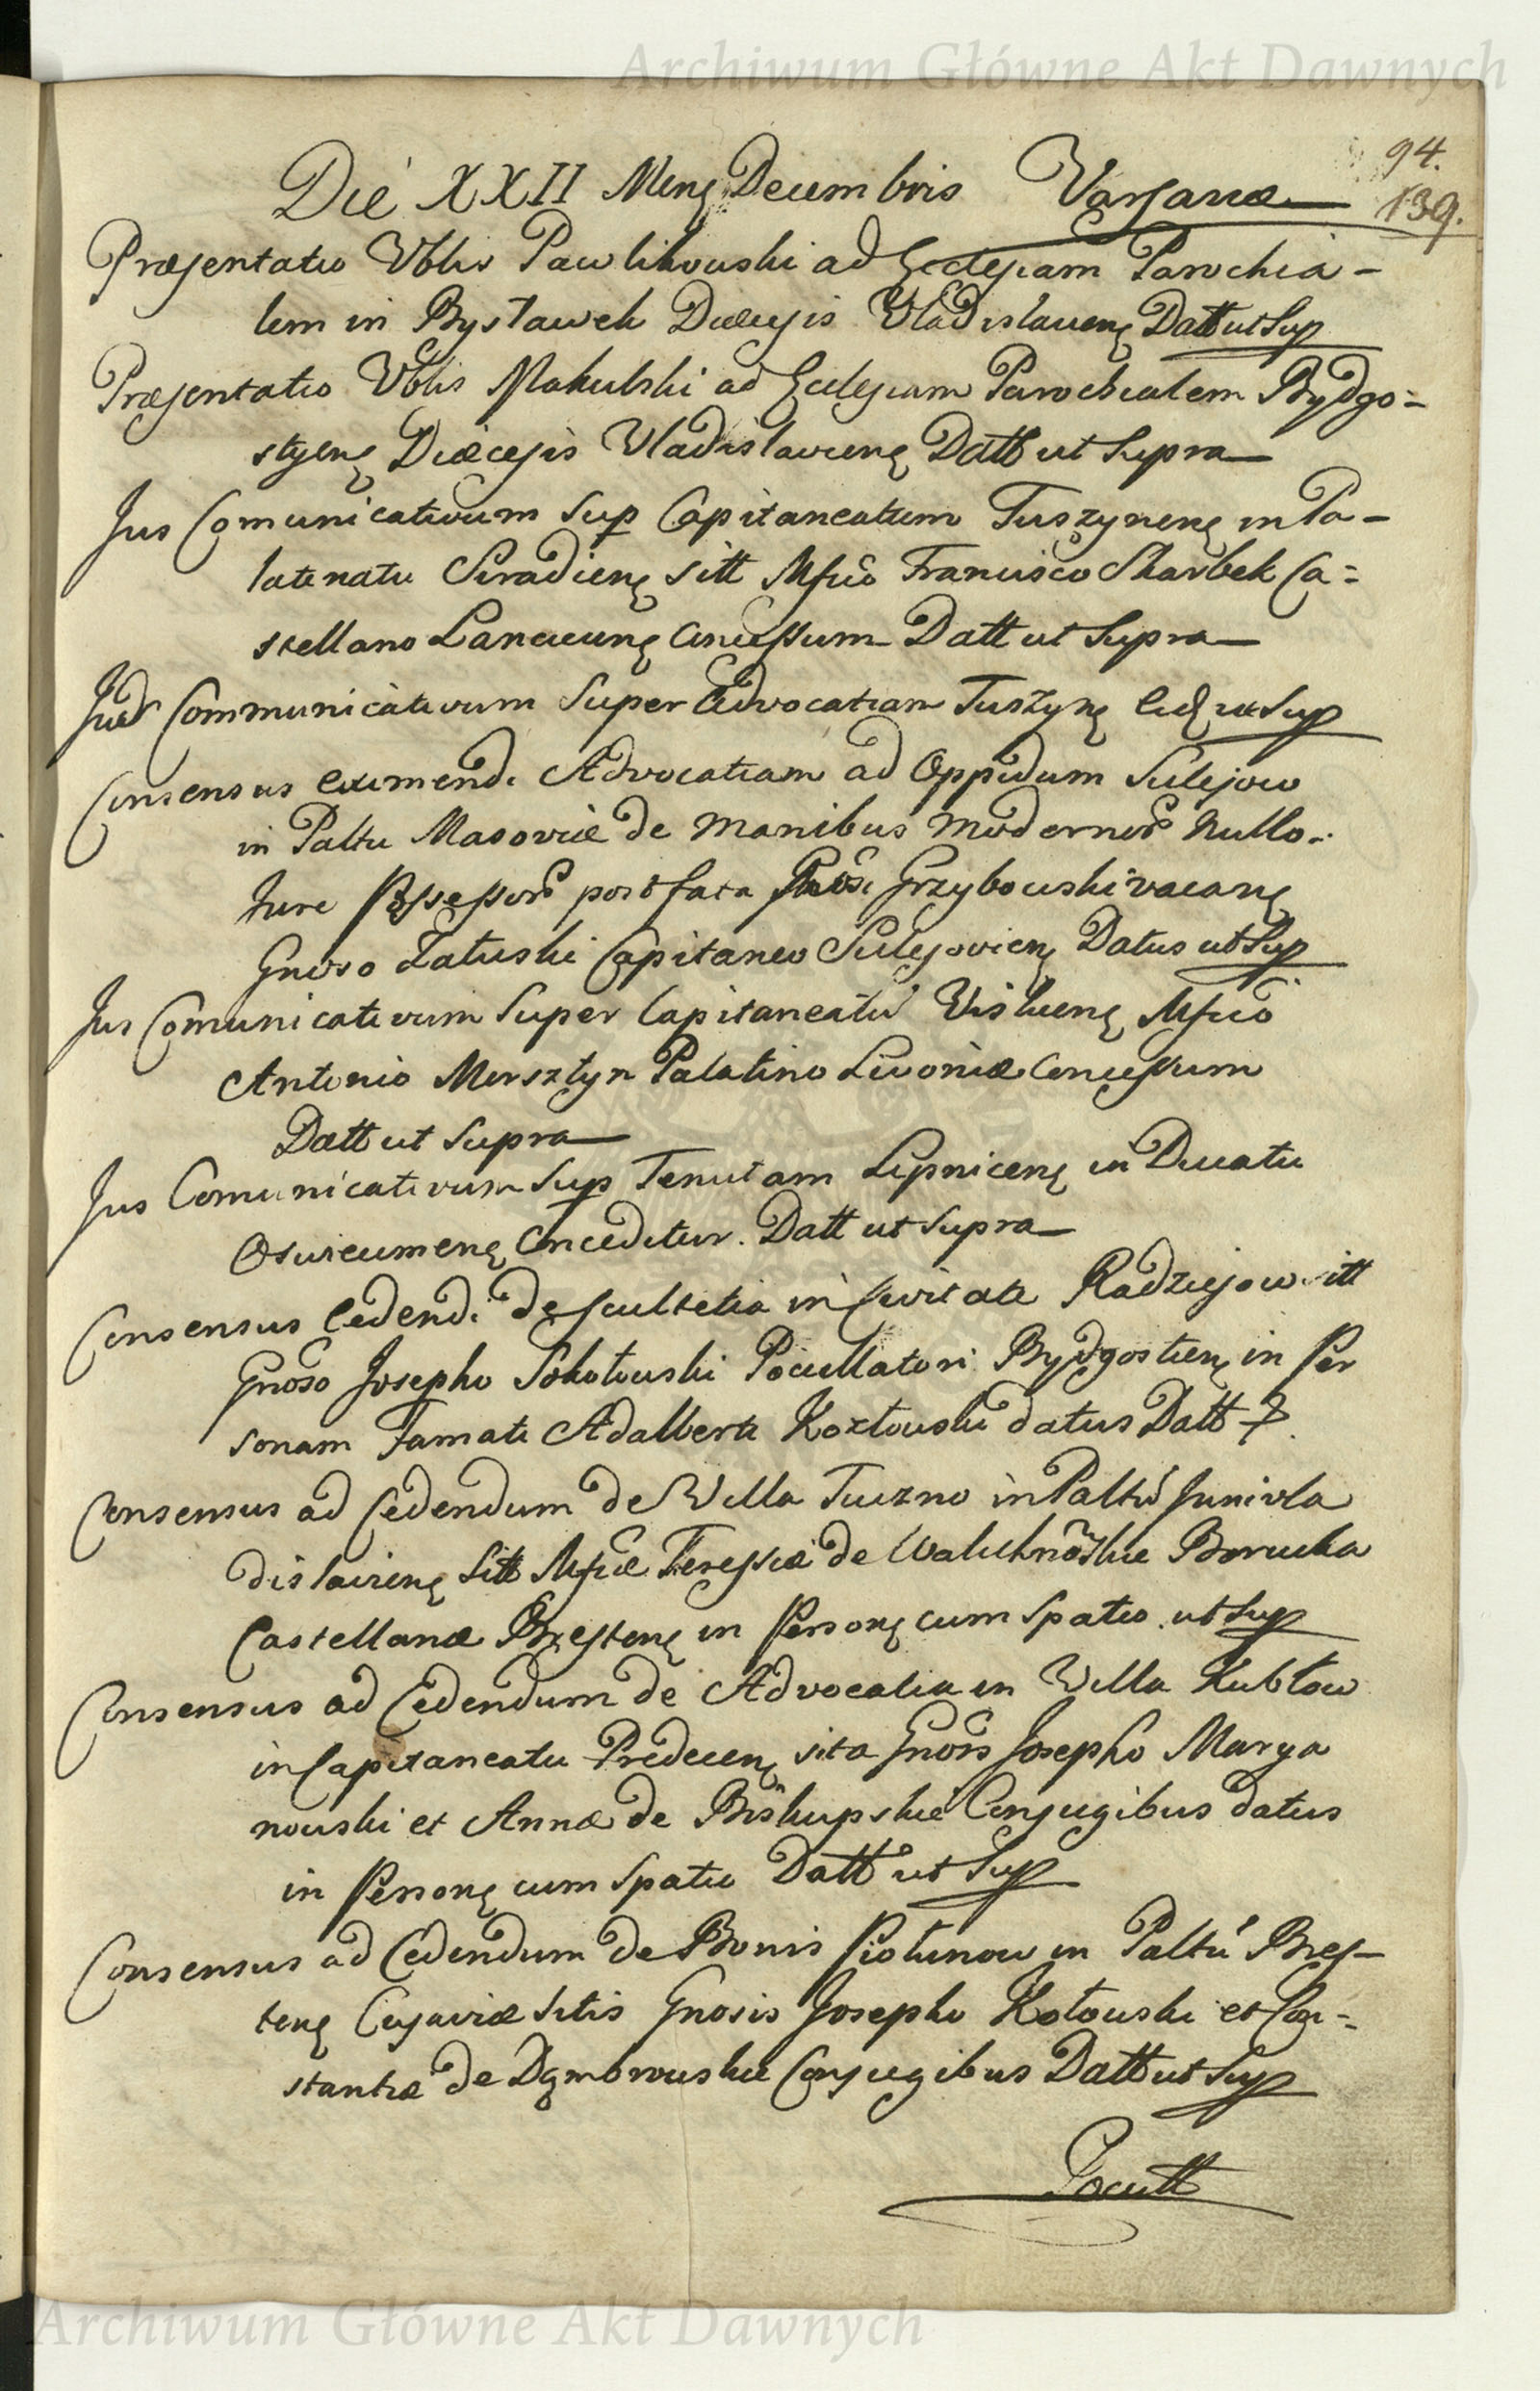 Archiwum Główne Akt Dawnych
94.
Die XXII Mens Decembris Varsaviæ
139.
Præsentatio Vblis Pawlikowski ad Ecclesiam Parochia-
lem in Bysławek Diæcesis Vladislaviens Datt ut Sup
Præsentatio Vblis Makulski ad Ecclesiam Parochialem Bydgo=
styens Diæcesis Vladislaviens Datt ut Supra
Jus Comunicativum Sup Capitaneatum Tuszynens in Pa-
latinatu Siradiens sitt Mfco Francisco Skarbek Ca=
stellano Lanciciens Concessum Datt ut Supra
Jus Communicativum Super Advocatiam Tuszyns ut Sup
Consensus eximendi Advocatiam ad Oppidum Sulejow
in Paltu Masoviæ de manibus modernor Nullo
Jure Possessor post fata Gnosi Grzybowski vacans
Gnoso Załuski Capitaneo Sulejoviens Datus ut Sup
Jus Comunicativum Super Capitaneatu Viskiens Mfco
Antonio Morsztyn Palatino Livoniæ Concessum
Datt ut Supra
Jus Comunicativum Sup Tenutam Lipnicens in Ducatu
Osviecimens Conceditur. Datt ut Supra
Consensus Cedendi de Scultetia in Civitate Radziejow sitt
Gnoso Josepho Sokołowski Pocillatori Bydgostiens in Per
sonam Famati Adalberti Kozłowski datus Datt
Consensus ad Cedendum de Villa Tuczno in Paltu Junivla
dislaviens Sitt Mfcæ Teressiæ de Walichnoskie Borucka
Castellanæ Brzestens in Persons cum Spatio ut Sup
Consensus ad Cedendum de Advocatia in Villa Kubłow
in Capitaneatu Predecens sita Gnosis Josepho Marya
nowski et Annæ de Biskupskie Conjugibus datus
in Persons cum Spatio Datt ut Sup
Consensus ad Cedendum de Bonis Piołunow in Paltu Bres-
tens Cujaviæ Sitis Gnosis Josepho Kołowski et Con=
stantiæ de Dąmbrowskie Conjugibus Datt ut Sup
Archiwum Główne Akt Dawnych